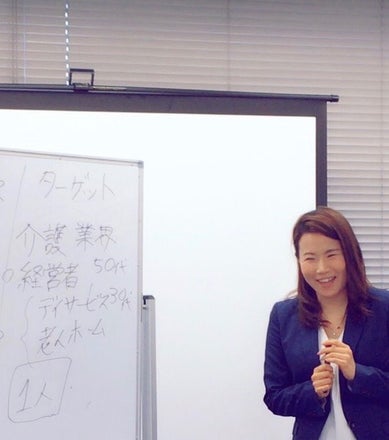 ターゲット
介護業界
経営者 50代
デイサービス30代
老人ホーム
1人